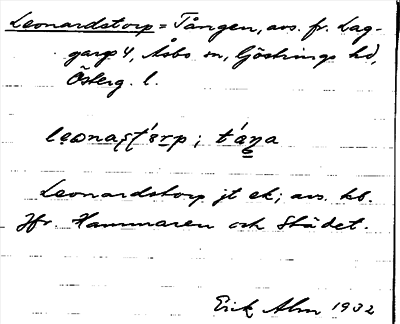 Leonardstorp = Tången, avs. fr. Lag-
garp 4, Åsbo sn, Göstrings hd,
Österg. l.
Leonardstorp jt ek; avs. hb.
Jfr Hammaren och Städet.
Erik Alm 1932